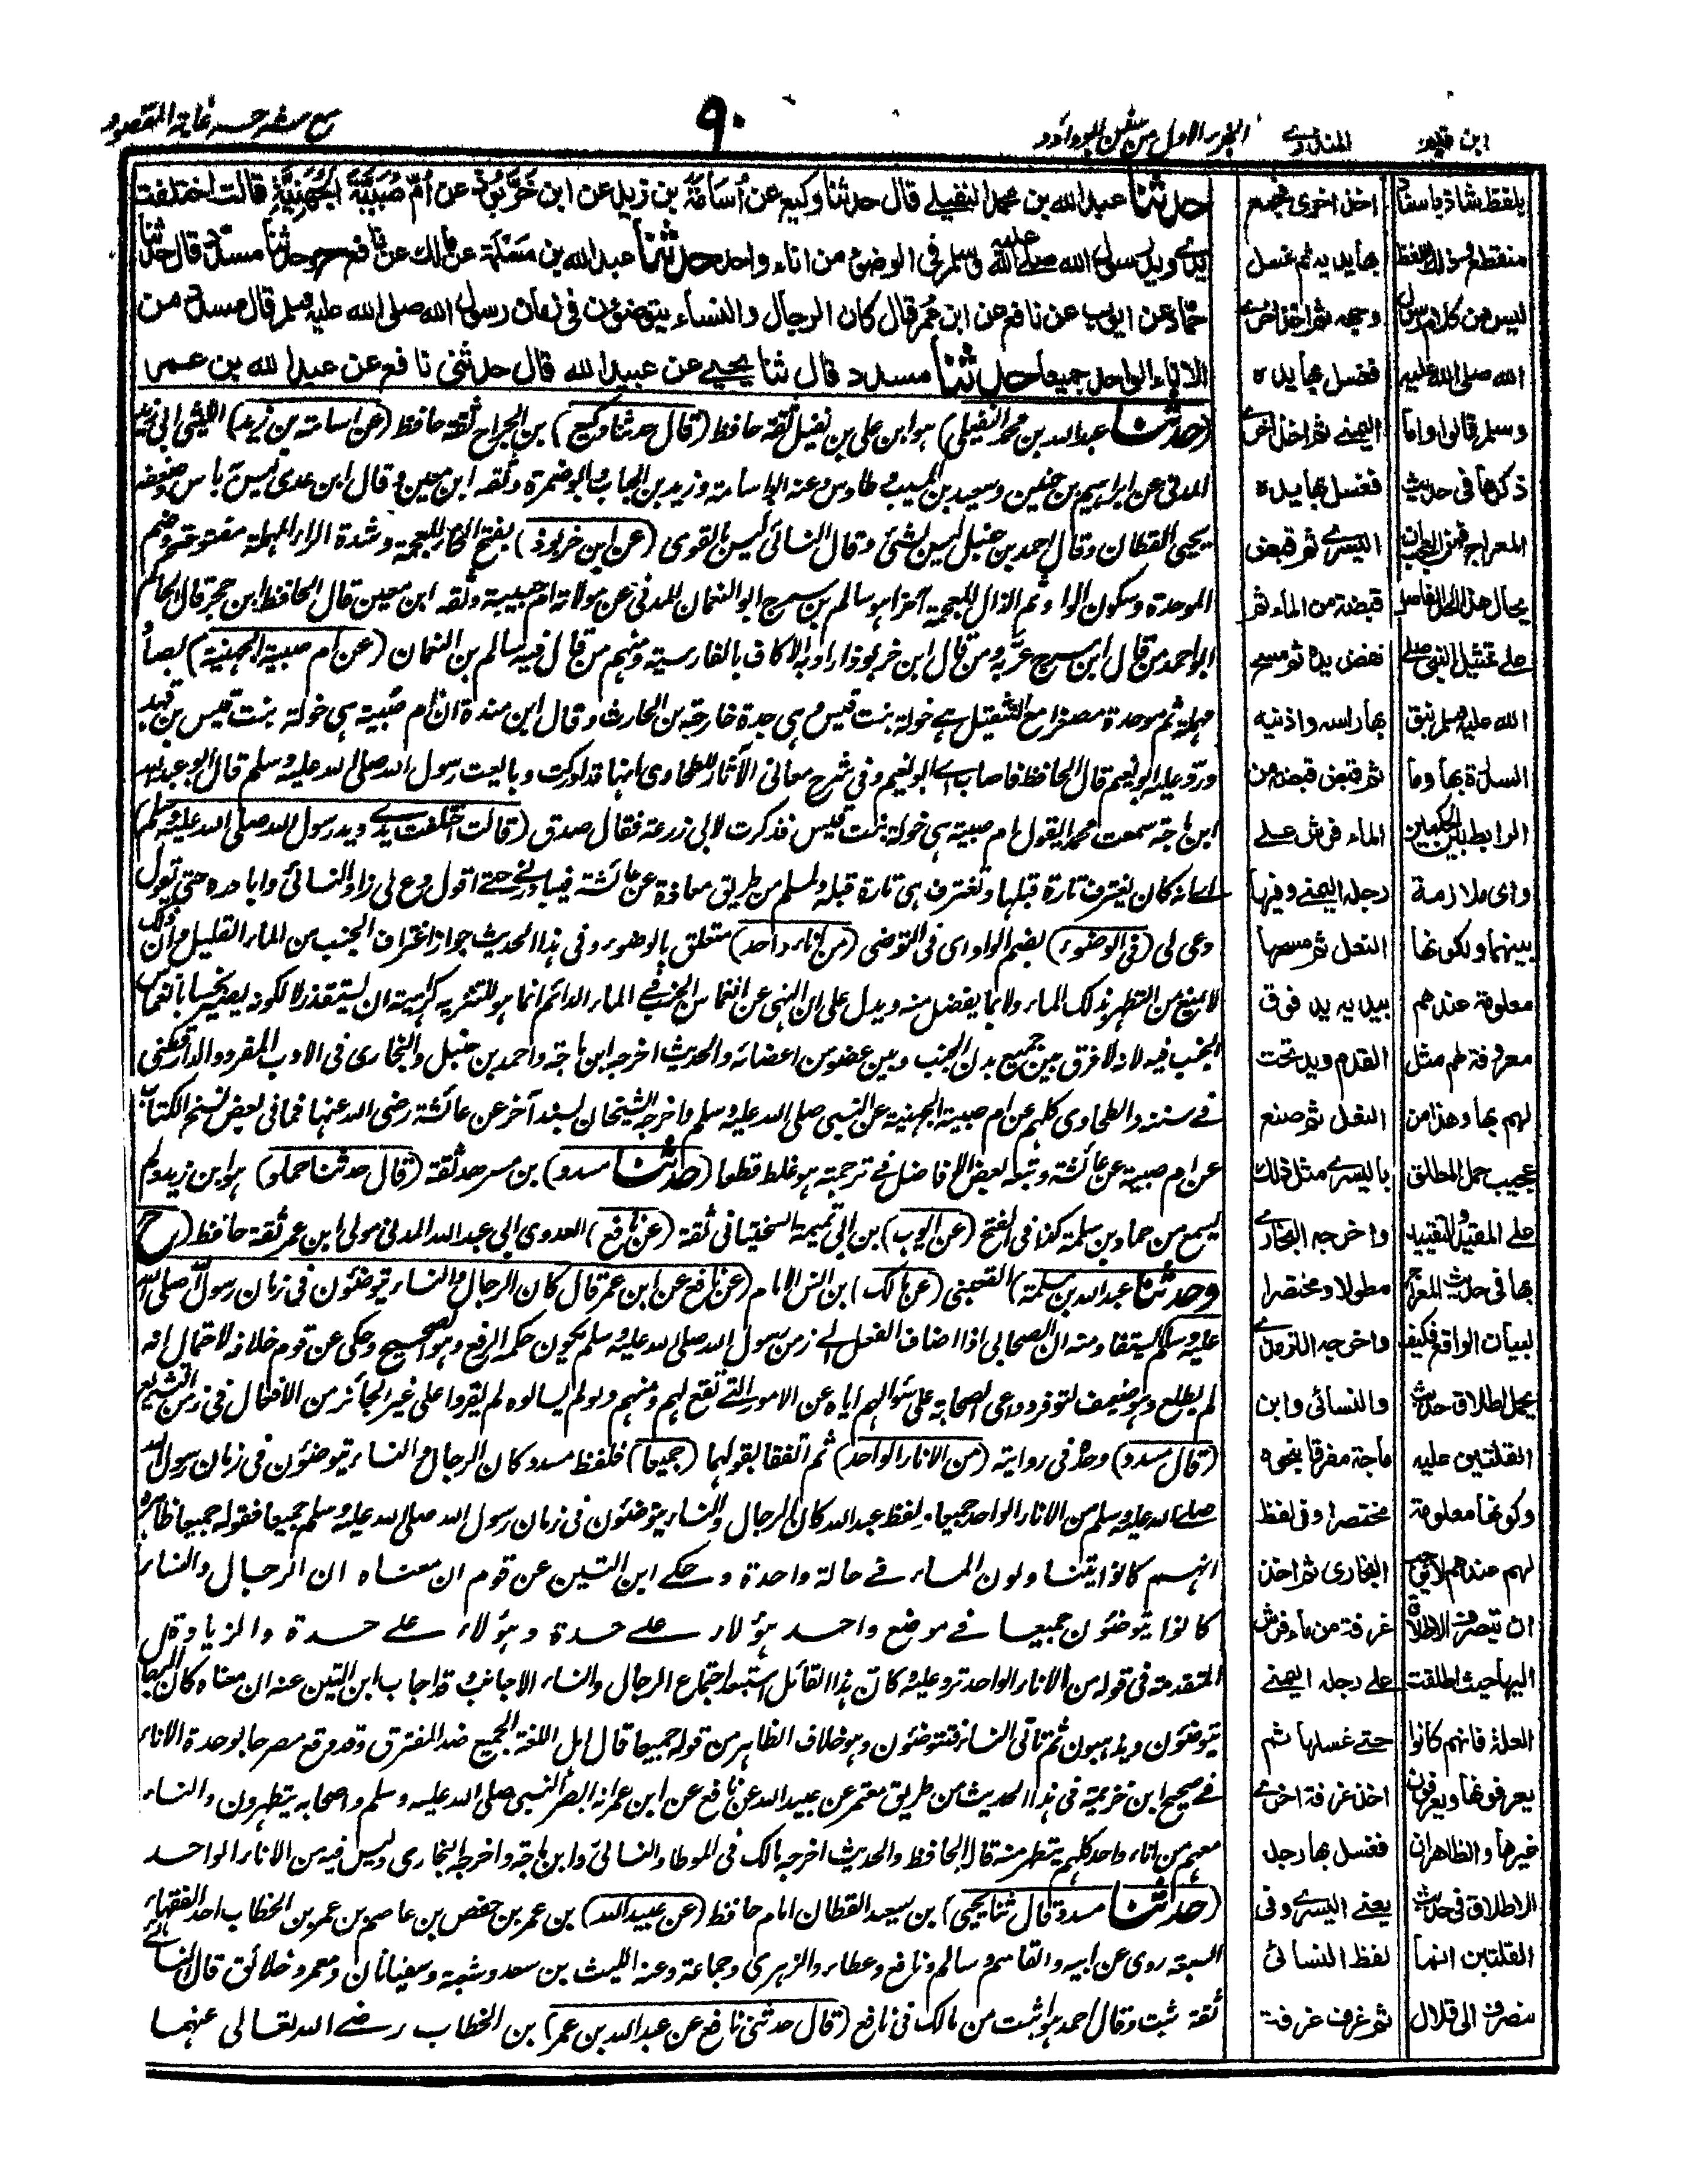 ابن قيم
المنذري
الجزء الاول من سنن ابوداود
٩٠
مع شرحه غاية المقصود
حدثنا عبد الله بن محمد النفيلي قال حدثنا وكيع عن أسامة بن زيد عن ابن خَرَّبُوذ عن أُمّ صُبَيَّةَ الجُهَنِيَّةِ قالت اختلفت
يدي ويد رسول الله صلى الله عليه وسلم في الوضوء من اناء واحد حدثنا عبد الله بن مسلمة عن مالك عن نافع ح وحدثنا مسدد قال حدثنا
حماد عن ايوب عن نافع عن ابن عمر قال كان الرجال والنساء يتوضئون في زمان رسول الله صلى الله عليه وسلم قال مسدد من
الاناء الواحد جميعا حدثنا مسدد قال ثنا يحيى عن عبيد الله قال حدثني نافع عن عبد الله بن عمر
(حدثنا عبد الله بن محمد النفيلي) هو ابن علي بن نفيل ثقة حافظ (قال حدثنا وكيع) بن الجراح ثقة حافظ (عن اسامة بن زيد) الليثي ابي زيد
المدني عن ابراهيم بن حنين وسعيد بن المسيب وطاوس وعنه ابو اسامة وزيد بن الحباب وابو ضمرة وثقه ابن معين وقال ابن عدي ليس به باس وضعفه
يحيى القطان وقال احمد بن حنبل ليس بشئ وقال النسائي ليس بالقوى (عن ابن خربوذ) بفتح الخاء المعجمة وشدة الراء المهملة مفتوحة وضم
الموحدة وسكون الواو ثم الذال المعجمة آخرا هو سالم بن سرج ابو النعمان المدني عن مولاته ام حبيبة وثقه ابن معين قال الحافظ ابن حجر قال الحاكم
ابو احمد من قال ابن سرج عربه ومن قال ابن خربوذ اراد به الاكاف بالفارسية ومنهم من قال فيه سالم بن النعمان (عن ام صبية الجهنية) بصاد
مهملة ثم موحدة مصغرا مع التثقيل هي خولة بنت قيس وهي جدة خارجة بن الحارث وقال ابن مندة ان ام صبية هي خولة بنت قيس بن قهد
ورد عليه ابو نعيم قال الحافظ فاصاب اي ابو نعيم وفي شرح معاني الآثار للطحاوي انها قد ادركت وبايعت رسول الله صلى الله عليه وسلم قال ابو عبد الله
ابن ماجة سمعت محمدا يقول ام صبية هي خولة بنت قيس فذكرت لابي زرعة فقال صدق (قالت اختلفت يدي ويد رسول الله صلى الله عليه وسلم)
اي انه كان يغترف تارة قبلها وتغترف هي تارة قبله ولمسلم من طريق معاذة عن عائشة فيبادرني حتى اقول دع لي زاد النسائي وابادره حتى يقول
دعي لي (في الوضوء) بضم الواو اي في التوضي (من اناء واحد) متعلق بالوضوء وفي هذا الحديث جواز اغتراف الجنب من الماء القليل وان ذلك
لا يمنع من التطهر بذلك الماء ولا بما يفضل منه ويدل على ان النهي عن انغماس الجنب في الماء الدائم انما هو للتنزيه كراهية ان يستقذر لا لكونه يصير نجسا بانغماس
الجنب فيه لانه لا فرق بين جميع بدن الجنب وبين عضو من اعضائه والحديث اخرجه ابن ماجة واحمد بن حنبل والبخاري في الادب المفرد والدارقطني
في سننه والطحاوي كلهم عن ام صبية الجهنية عن النبي صلى الله عليه وسلم واخرجه الشيخان بسند آخر عن عائشة رضي الله عنها فما في بعض نسخ الكتاب
عن ام صبية عن عائشة وتبعه بعض الافاضل في ترجمته هو غلط قطعا (حدثنا مسدد) بن مسرهد ثقة (قال حدثنا حماد) هو ابن زيد ولم
يسمع من حماد بن سلمة كذا في الفتح (عن ايوب) بن ابي تميمة السختياني ثقة (عن نافع) العدوي ابي عبد الله المدني مولى ابن عمر ثقة حافظ (ح
وحدثنا عبد الله بن مسلمة) القعنبي (عن مالك) بن انس الامام (عن نافع عن ابن عمر قال كان الرجال والنساء يتوضئون في زمان رسول الله صلى الله
عليه وسلم يستفاد منه ان الصحابي اذا اضاف الفعل الى زمن رسول الله صلى الله عليه وسلم يكون حكمه الرفع وهو الصحيح وحكي عن قوم خلافه لاحتمال انه
لم يطلع وهو ضعيف لتوفر دواعي الصحابة على سؤالهم اياه عن الامور التي تقع لهم ومنهم ولو لم يسالوه لم يقروا على غير الجائز من الافعال في زمن التشريع
(قال مسدد) وحده في روايته (من الاناء الواحد) ثم اتفقا بقولهما (جميعا) فلفظ مسدد كان الرجال والنساء يتوضئون في زمان رسول الله
صلى الله عليه وسلم من الاناء الواحد جميعا. لفظ عبد الله كان الرجال والنساء يتوضئون في زمان رسول الله صلى الله عليه وسلم جميعا فقوله جميعا ظاهره
انهم كانوا يتناولون الماء في حالة واحدة وحكى ابن التين عن قوم ان معناه ان الرجال والنساء
كانوا يتوضئون جميعا في موضع واحد هؤلاء على حدة وهؤلاء على حدة والزيادة
المتقدمة في قوله من الاناء الواحد ترد عليه وكان هذا القائل استبعد اجتماع الرجال والنساء الاجانب وقد اجاب ابن التين عنه ان معناه كان الرجال
يتوضئون ويذهبون ثم تأتي النساء فتتوضئون وهو خلاف الظاهر من قوله جميعا قال اهل اللغة الجميع ضد المفترق وقد وقع مصرحا بوحدة الاناء
في صحيح ابن خزيمة في هذا الحديث من طريق معتمر عن عبيد الله عن نافع عن ابن عمر انه ابصر النبي صلى الله عليه وسلم واصحابه يتطهرون والنساء
معهم من اناء واحد كلهم يتطهر منه قال الحافظ والحديث اخرجه مالك في الموطا والنسائي وابن ماجة واخرجه البخاري وليس فيه من الاناء الواحد
(حدثنا مسدد قال ثنا يحيى) بن سعيد القطان امام حافظ (عن عبيد الله) بن عمر بن حفص بن عاصم بن عمر بن الخطاب احد الفقهاء
السبعة روى عن ابيه والقاسم وسالم ونافع وعطاء والزهري وجماعة وعنه الليث بن سعد وشعبة وسفيانان ومعمر وخلائق قال النسائي
ثقة ثبت وقال احمد هو اثبت من مالك في نافع (قال حدثني نافع عن عبد الله بن عمر) بن الخطاب رضي الله تعالى عنهما
اخذ اخرى فجمع
بها يديه ثم غسل
وجهه ثم اخذ اخرى
فغسل بها يده
اليمنى ثم اخذ اخرى
فغسل بها يده
اليسرى ثم قبض
قبضة من الماء ثم
نفض يده ثم مسح
بها راسه واذنيه
ثم قبض قبضة من
الماء فرش على
رجله اليمنى وفيها
النعل ثم مسحها
بيديه يد فوق
القدم ويد تحت
النعل ثم صنع
باليسرى مثل ذلك
واخرجه البخاري
مطولا ومختصرا
واخرجه الترمذي
والنسائي وابن
ماجة مفرقا بنحوه
مختصرا وفي لفظ
البخاري ثم اخذ
غرفة من ماء فرش
على رجله اليمنى
حتى غسلها ثم
اخذ غرفة اخرى
فغسل بها رجله
يعني اليسرى وفي
لفظ النسائي
ثم غرف غرفة
بلفظ شاذ باسناد
منقطع وذلك اللفظ
ليس من كلام رسول
الله صلى الله عليه
وسلم قالوا واما
ذكرها في حديث
المعراج فمن العجب ان
يحال هذا الحد الفاصل
على تمثيل النبي صلى
الله عليه وسلم نبق
السدرة بها وما
الرابط بين الحكمين
واي ملازمة
بينهما ولكونها
معلومة عندهم
معروفة لهم مثل
لهم بها وهذا من
عجيب حمل المطلق
على المقيد والتقييد
بها في حديث المعراج
لبيان الواقع فكيف
يحمل اطلاق حديث
القلتين عليه
وكونها معلومة
لهم عندهم لا يوجب
ان تنصرف الاطلاق
اليها حيث اطلقت
العلة فانهم كانوا
يعرفونها ويعرفون
غيرها والظاهر ان
الاطلاق في حديث
القلتين انما
ينصرف الى قلال